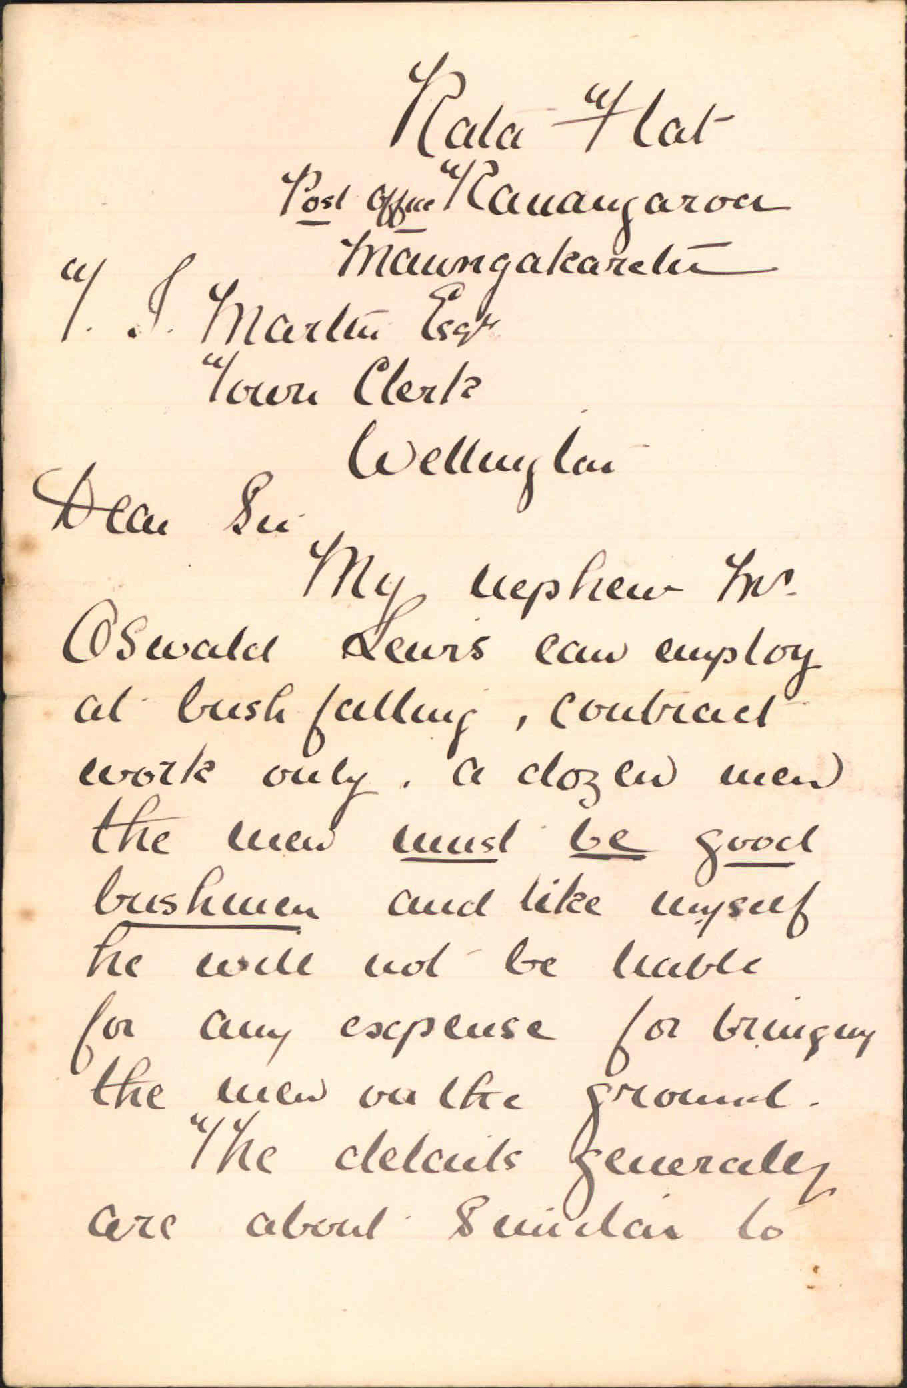 Rata Flat
Post Office Rauangaroa
Maungakaretu
T. J. Martin Esqr
Town Clerk
Wellington
Dear Sir
My nephew Mr.
Oswald Lewis can employ
at bush falling, contract
work only. a dozen men
the men must be good
bushmen and like myself
he will not be liable
for any expense for bringing
the men on the ground.
The details generally
are about Similar to